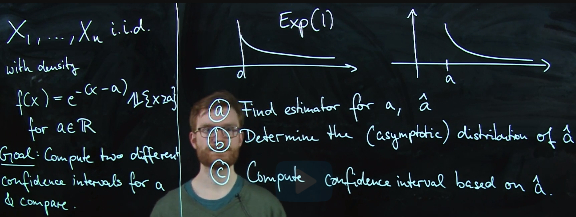 X₁, ..., Xₙ i.i.d.
with density
f(x) = e^{-(x-a)} 𝟙{x≥a}
for a∈ℝ
Goal: Compute two different
confidence intervals for a
& compare.
Exp(1)
d
a
(a) Find estimator for a, â
(b) Determine the (asymptotic) distribution of â
(c) Compute confidence interval based on â.